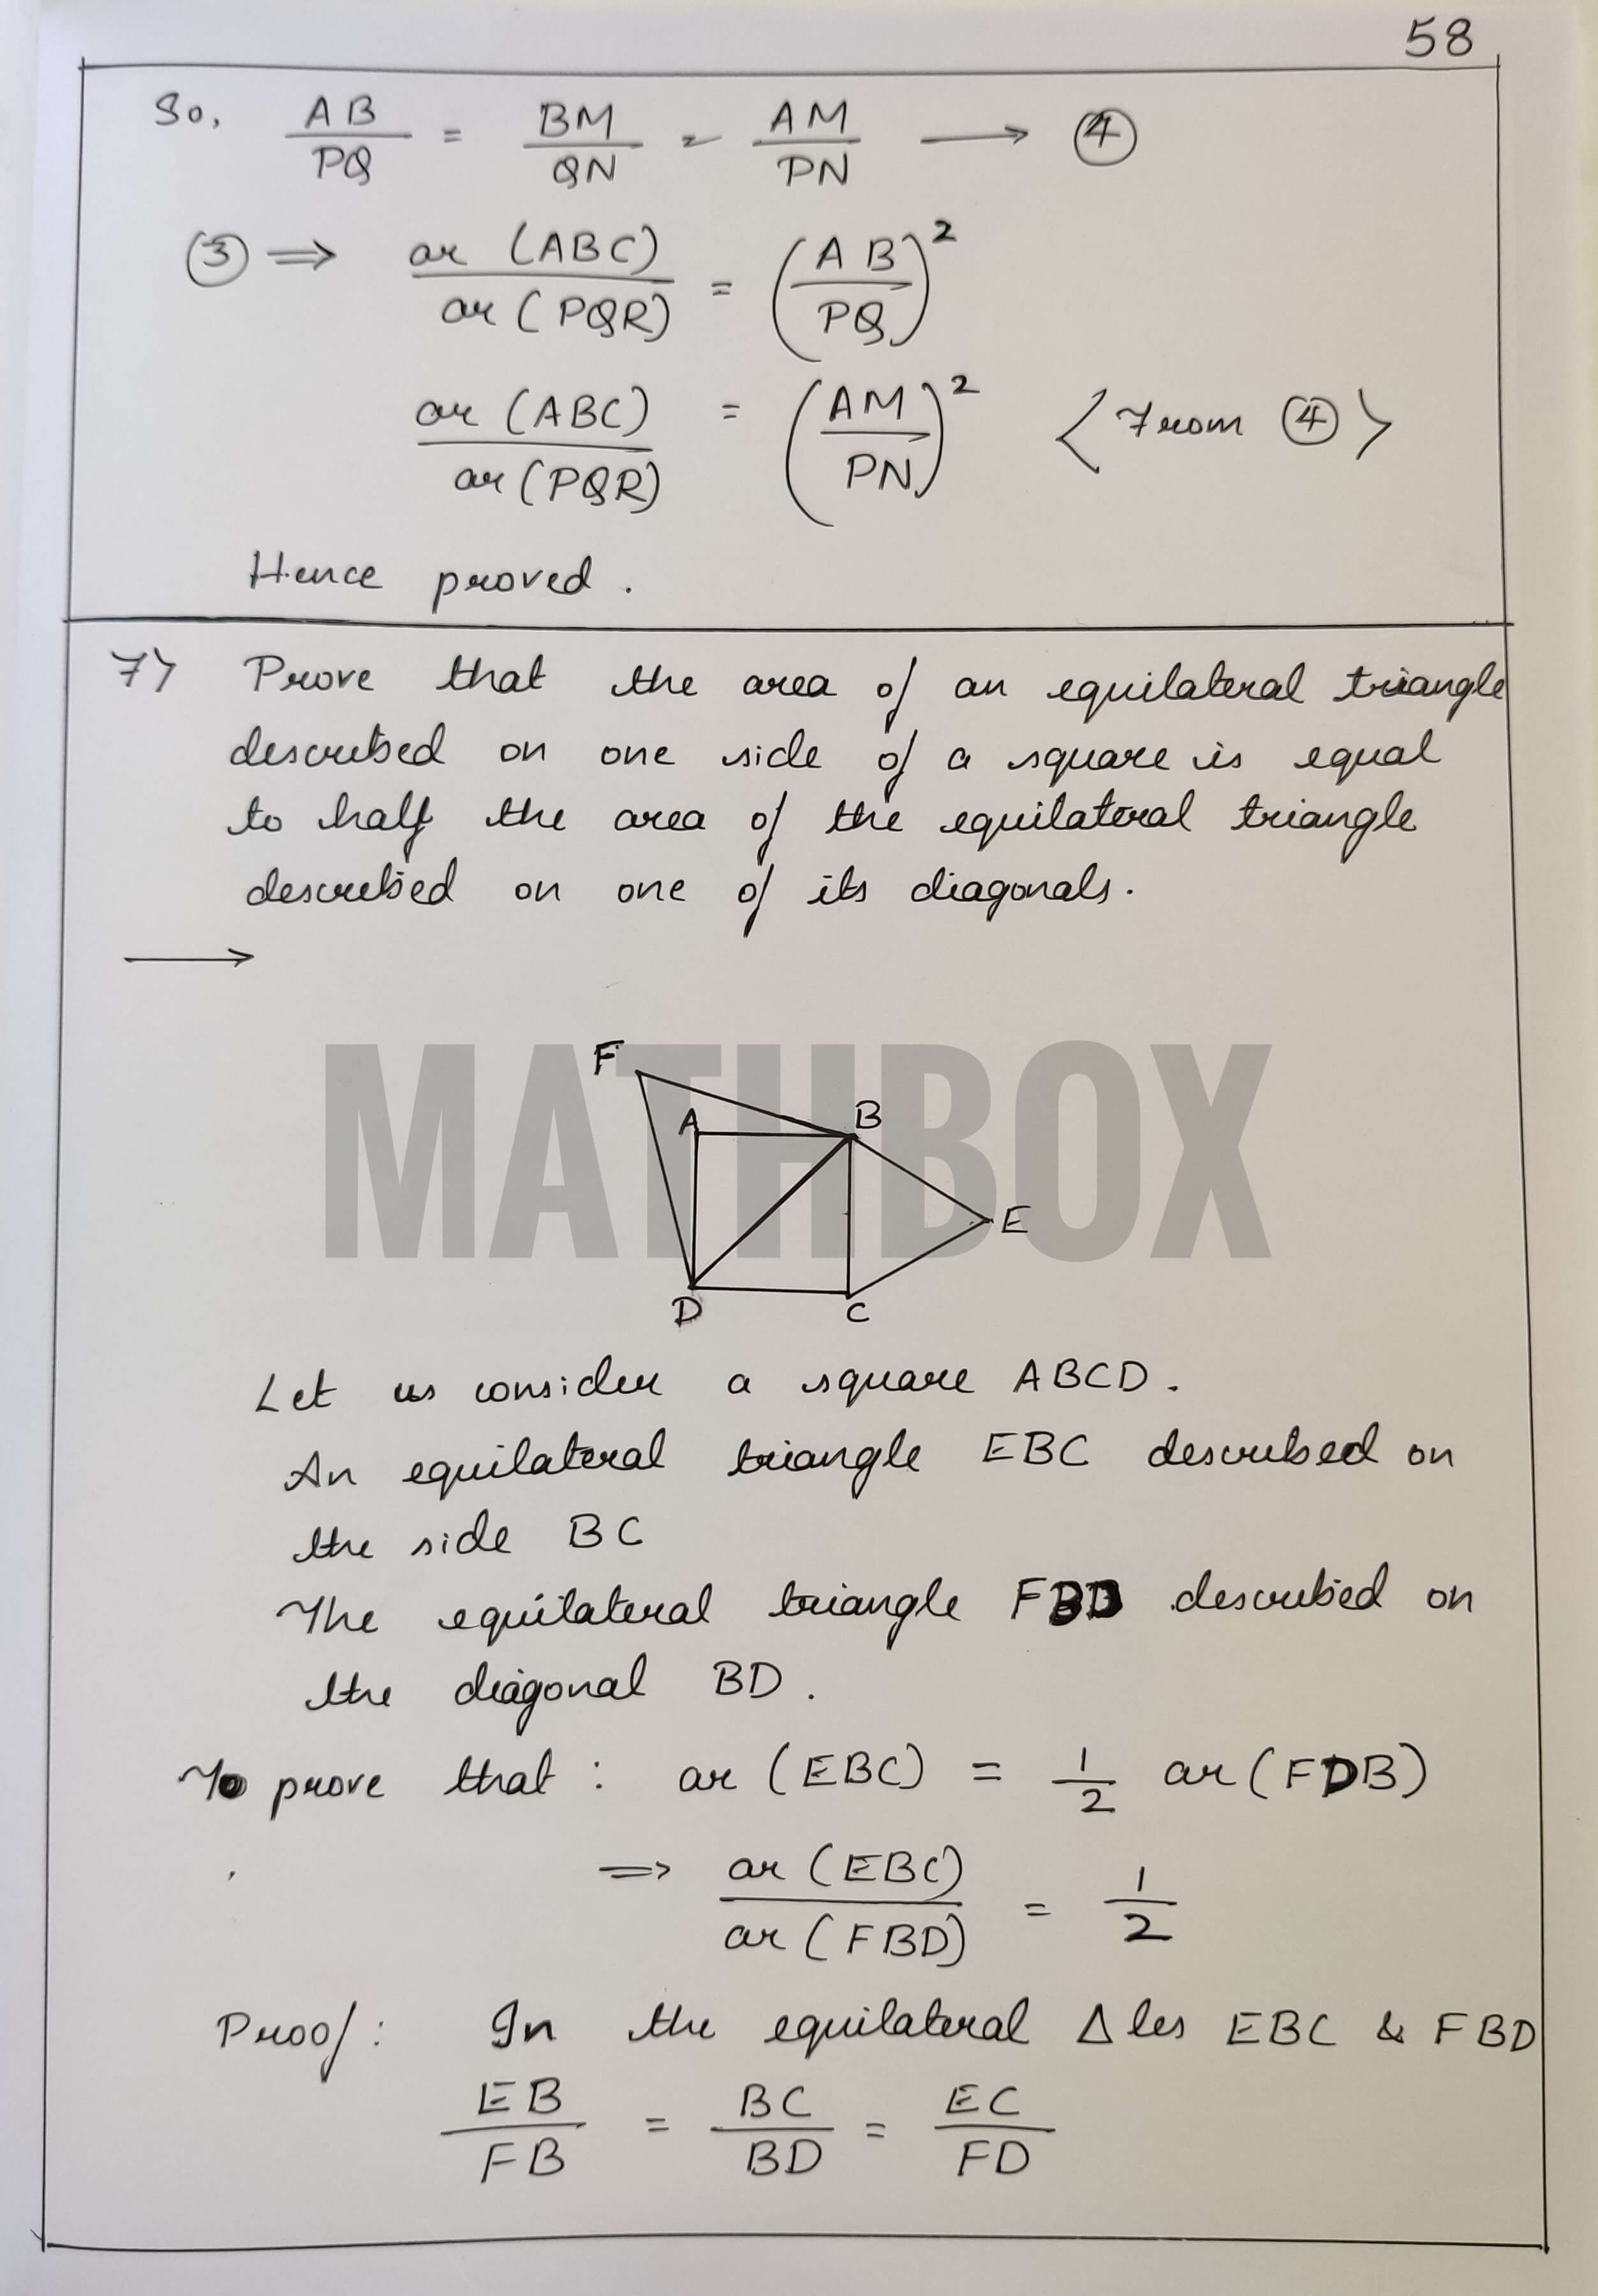 58
So, AB/PQ = BM/QN = AM/PN ⟶ ④
③ ⟹ ar (ABC)/ar (PQR) = (AB/PQ)²
ar (ABC)/ar (PQR) = (AM/PN)² < From ④ >
Hence proved.
7> Prove that the area of an equilateral triangle
described on one side of a square is equal
to half the area of the equilateral triangle
described on one of its diagonals.
⟶
MATHBOX
F
A B
E
D C
Let us consider a square ABCD.
An equilateral triangle EBC described on
the side BC
The equilateral triangle FBD described on
the diagonal BD.
To prove that : ar (EBC) = 1/2 ar (FDB)
⟹ ar (EBC)/ar (FBD) = 1/2
Proof : In the equilateral Δles EBC & FBD
EB/FB = BC/BD = EC/FD